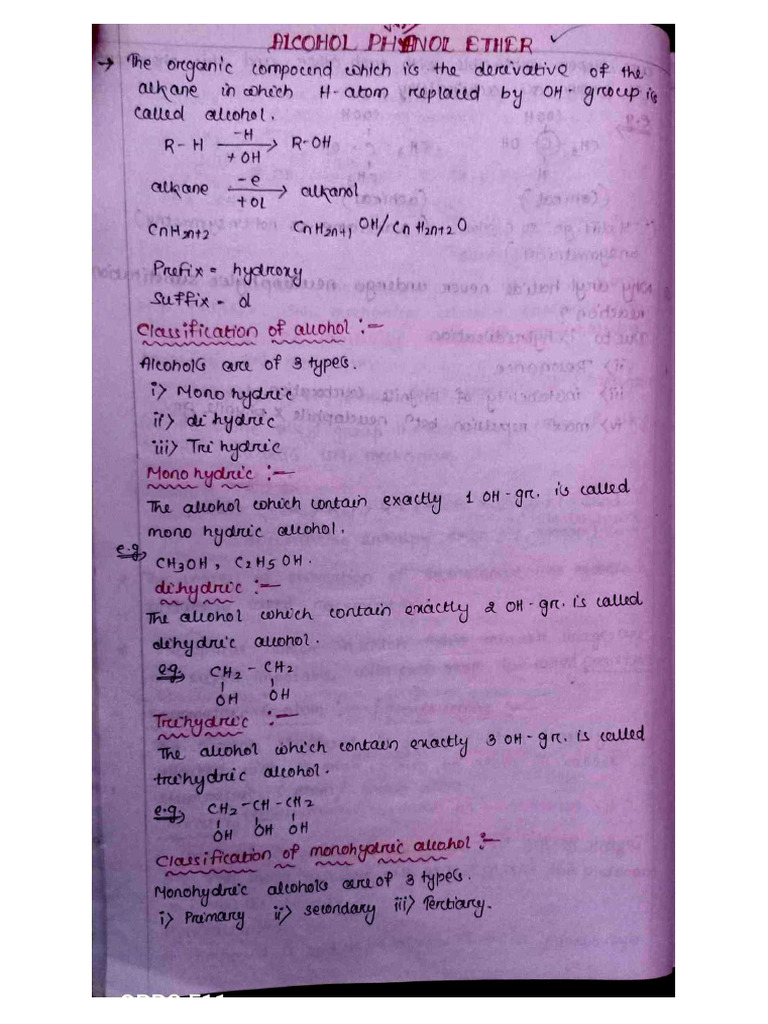 ALCOHOL PHENOL ETHER ✓
→ The organic compound which is the derivative of the
alkane in which H-atom replaced by OH-group is
called alcohol.
R-H —(-H / +OH)→ R-OH
alkane —(-e / +ol)→ alkanol
CnH2n+2 CnH2n+1 OH/CnH2n+2O
Prefix = hydroxy
Suffix - ol
Classification of alcohol :-
Alcohols are of 3 types.
i> Mono hydric
ii> di hydric
iii> Tri hydric
Mono hydric :-
The alcohol which contain exactly 1 OH-gr. is called
mono hydric alcohol.
e.g, CH3OH, C2H5OH.
dihydric :-
The alcohol which contain exactly 2 OH-gr. is called
dihydric alcohol.
eg, CH2 - CH2
OH OH
Trihydric :-
The alcohol which contain exactly 3 OH-gr. is called
trihydric alcohol.
e.g, CH2-CH-CH2
OH OH OH
Classification of monohydric alcohol :-
Monohydric alcohols are of 3 types.
i> Primary ii> secondary iii> Tertiary.